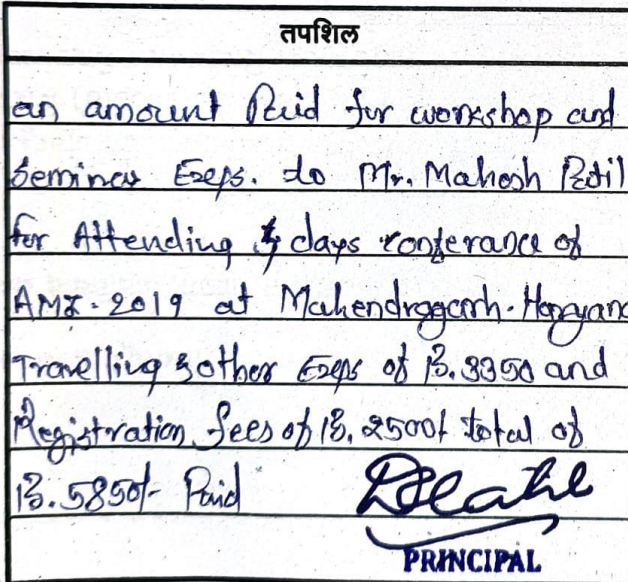 तपशिल
an amount Paid for workshop and
Seminar Exps. to Mr. Mahesh Patil
for Attending days conferance of
AMI-2019 at Mahendragarh-Haryana
Travelling & other Exps of Rs.3350 and
Registration fees of Rs.2500/- total of
Rs.5850/- Paid
PRINCIPAL